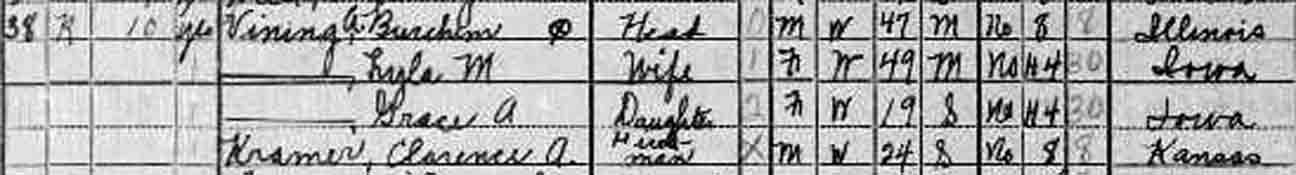 38 R 10 yes Vining, A. Burchim Head 0 M W 47 M No 8 8 Illinois
——, Lyla M Wife 1 F W 49 M No H4 30 Iowa
——, Grace A Daughter 2 F W 19 S No H4 30 Iowa
Kramer, Clarence A. man X M W 24 S No 8 8 Kansas